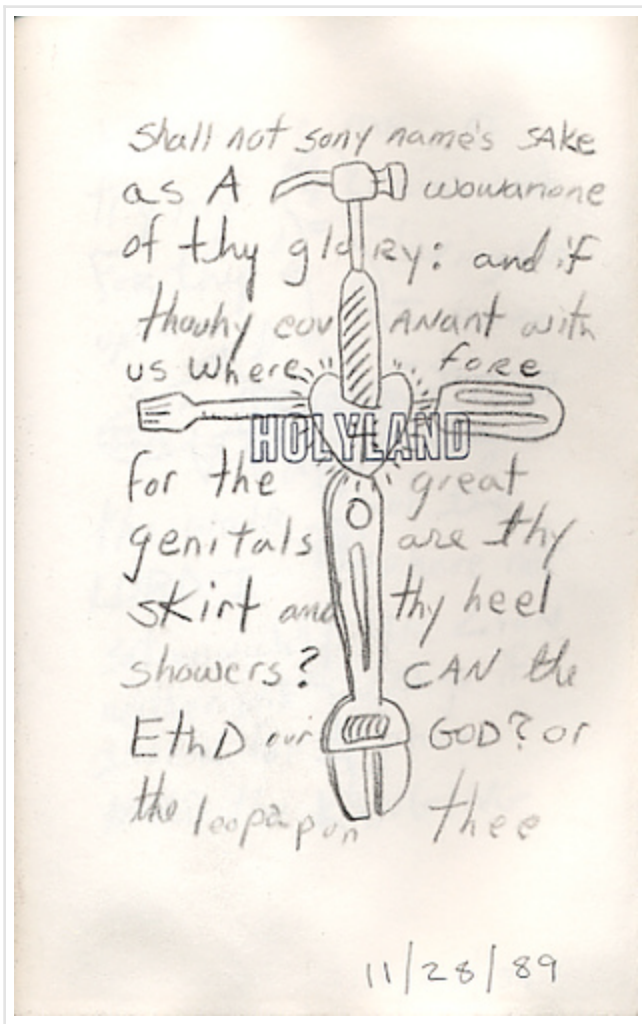 shall not sony name's sAke
as A wowanone
of thy gloRy: and if
thouhy cov ANANT with
us where fore
HOLYLAND
for the great
genitals are thy
skirt and thy heel
showers? CAN the
EthD our GOD? or
the leopapon thee
11/28/89